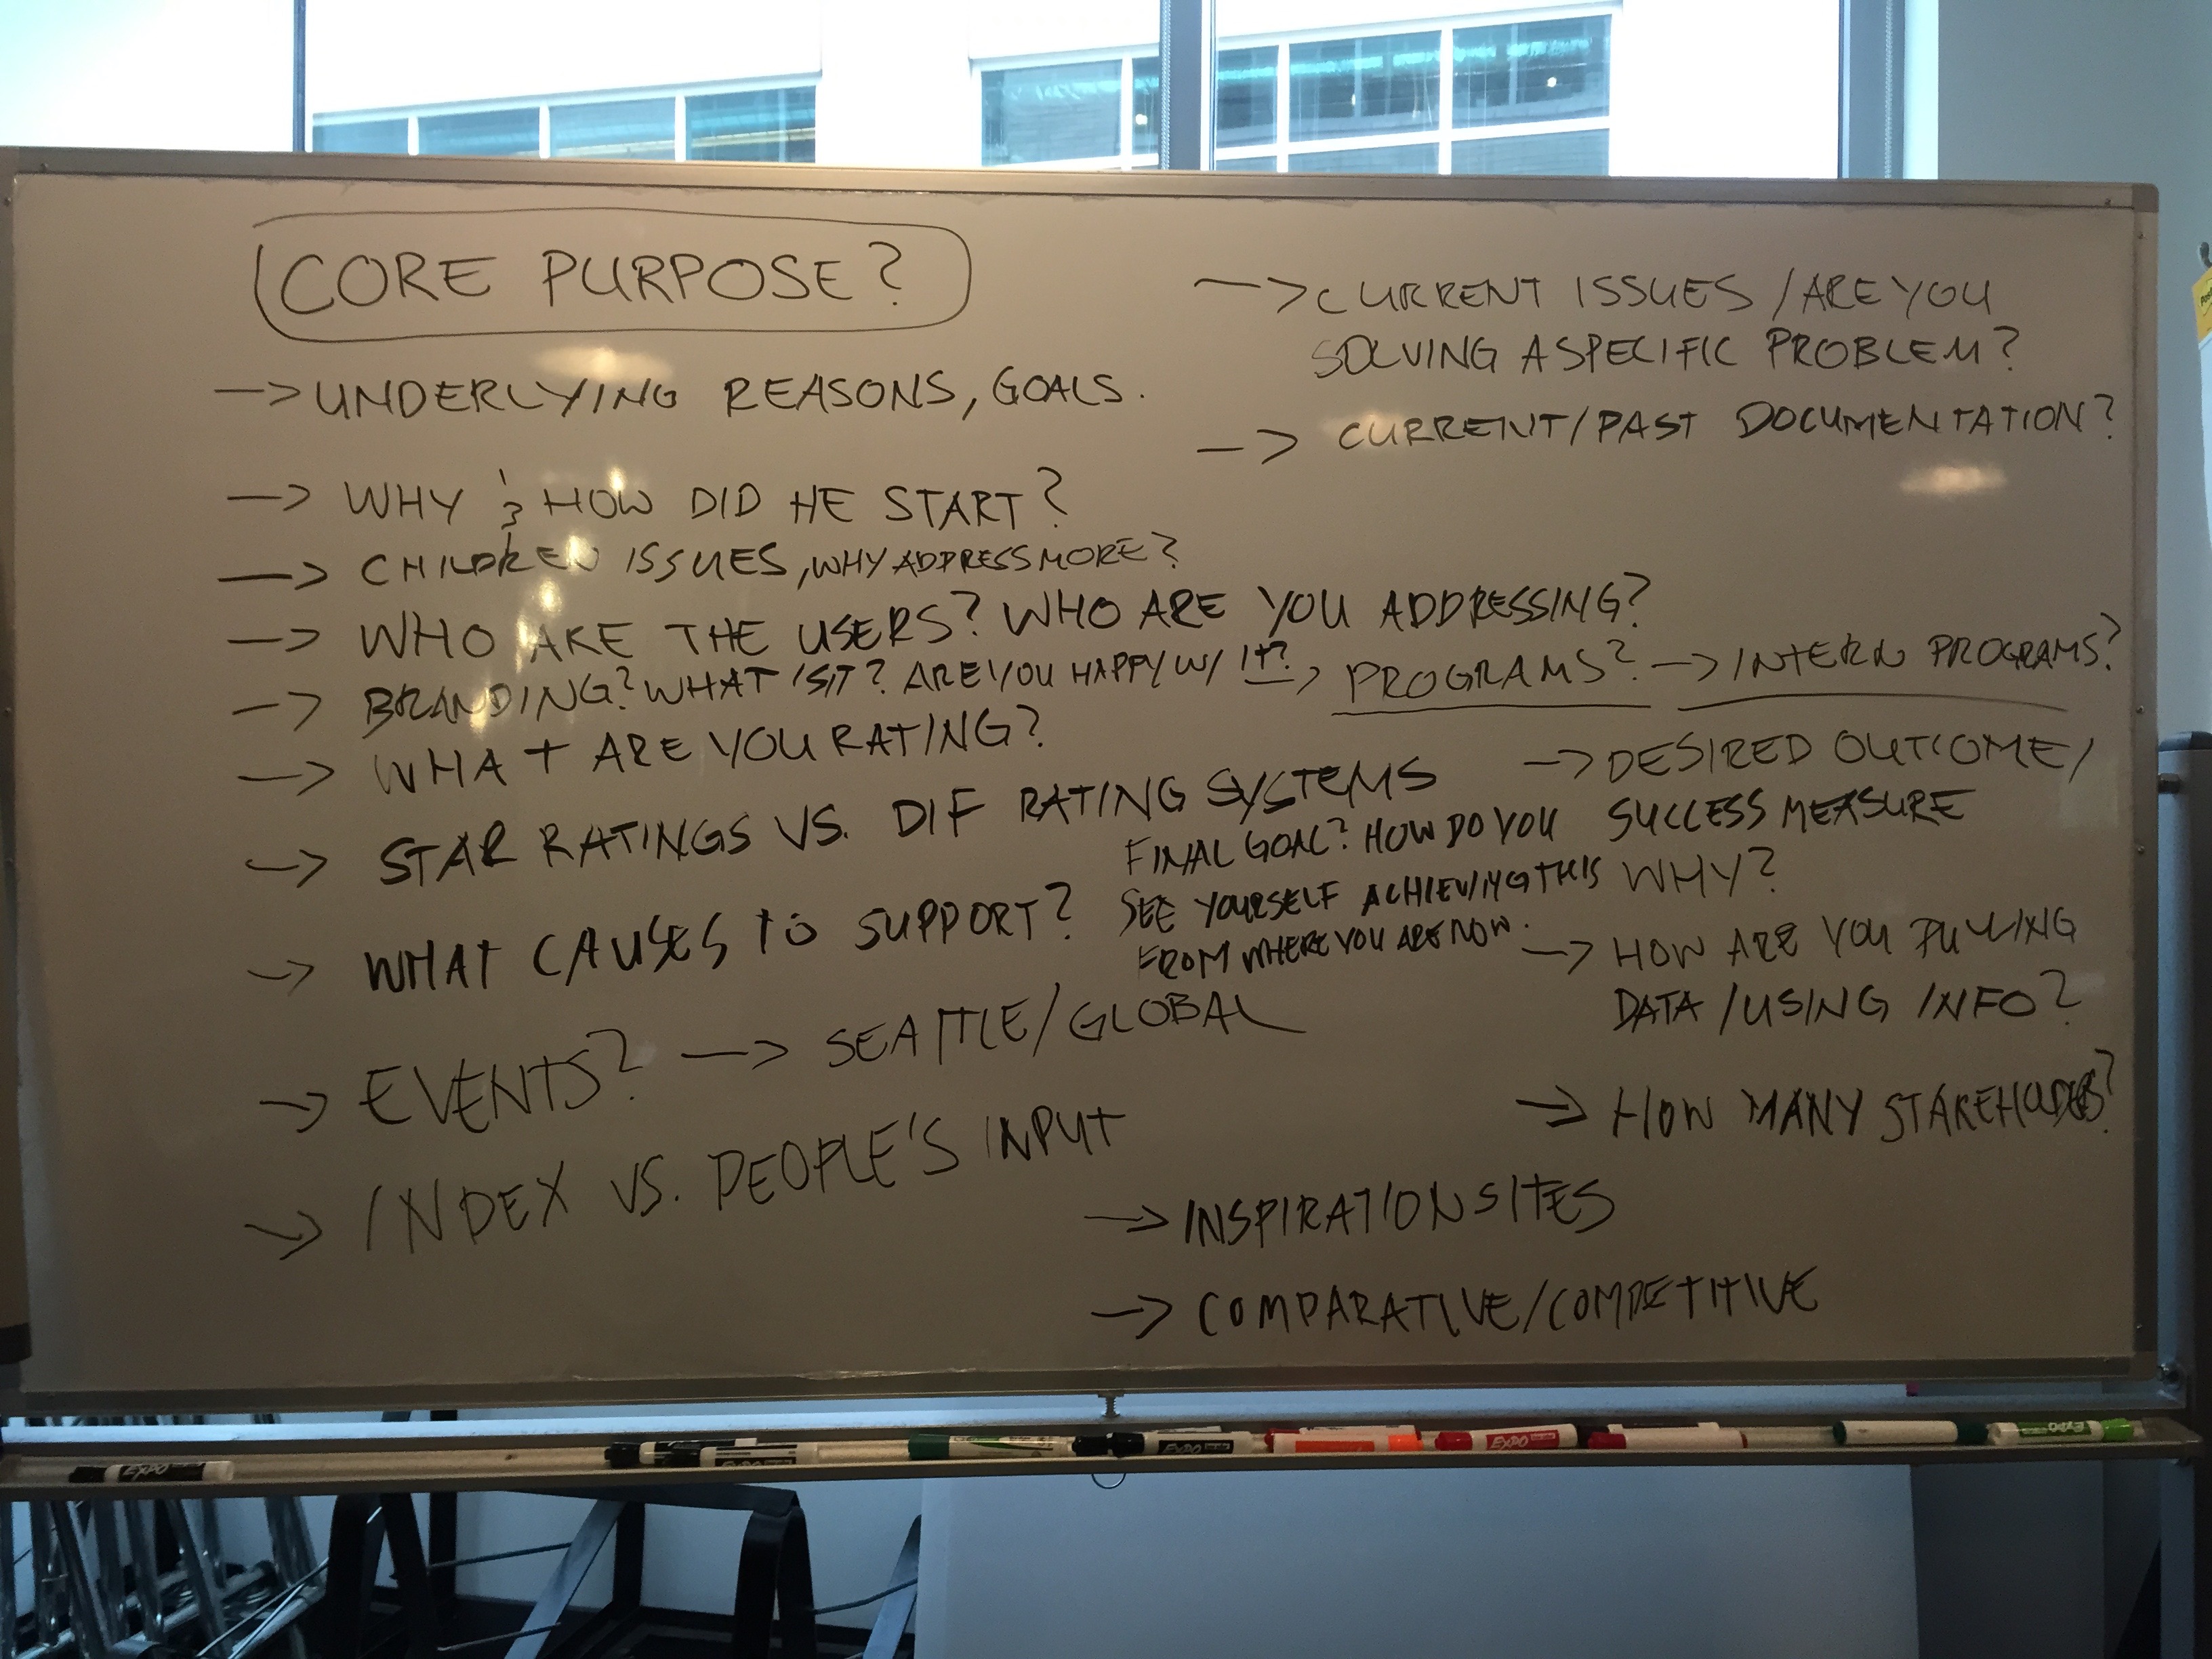 CORE PURPOSE?
-> UNDERLYING REASONS, GOALS.
-> WHY & HOW DID HE START?
-> CHILDREN ISSUES, WHY ADDRESS MORE?
-> WHO ARE THE USERS? WHO ARE YOU ADDRESSING?
-> BRANDING? WHAT IS IT? ARE YOU HAPPY W/ IT?, PROGRAMS? -> INTERN PROGRAMS?
-> WHAT ARE YOU RATING?
-> STAR RATINGS VS. DIF RATING SYSTEMS
-> WHAT CAUSES TO SUPPORT?
FINAL GOAL? HOW DO YOU
SEE YOURSELF ACHIEVING THIS
FROM WHERE YOU ARE NOW.
-> EVENTS? -> SEATTLE/GLOBAL
-> INDEX VS. PEOPLE'S INPUT
-> CURRENT ISSUES / ARE YOU
SOLVING A SPECIFIC PROBLEM?
-> CURRENT/PAST DOCUMENTATION?
-> DESIRED OUTCOME/
SUCCESS MEASURE
WHY?
-> HOW ARE YOU PULLING
DATA / USING INFO?
-> HOW MANY STAKEHOLDERS?
-> INSPIRATION SITES
-> COMPARATIVE/COMPETITIVE
EXPO
EXPO
EXPO
EXPO
EXPO